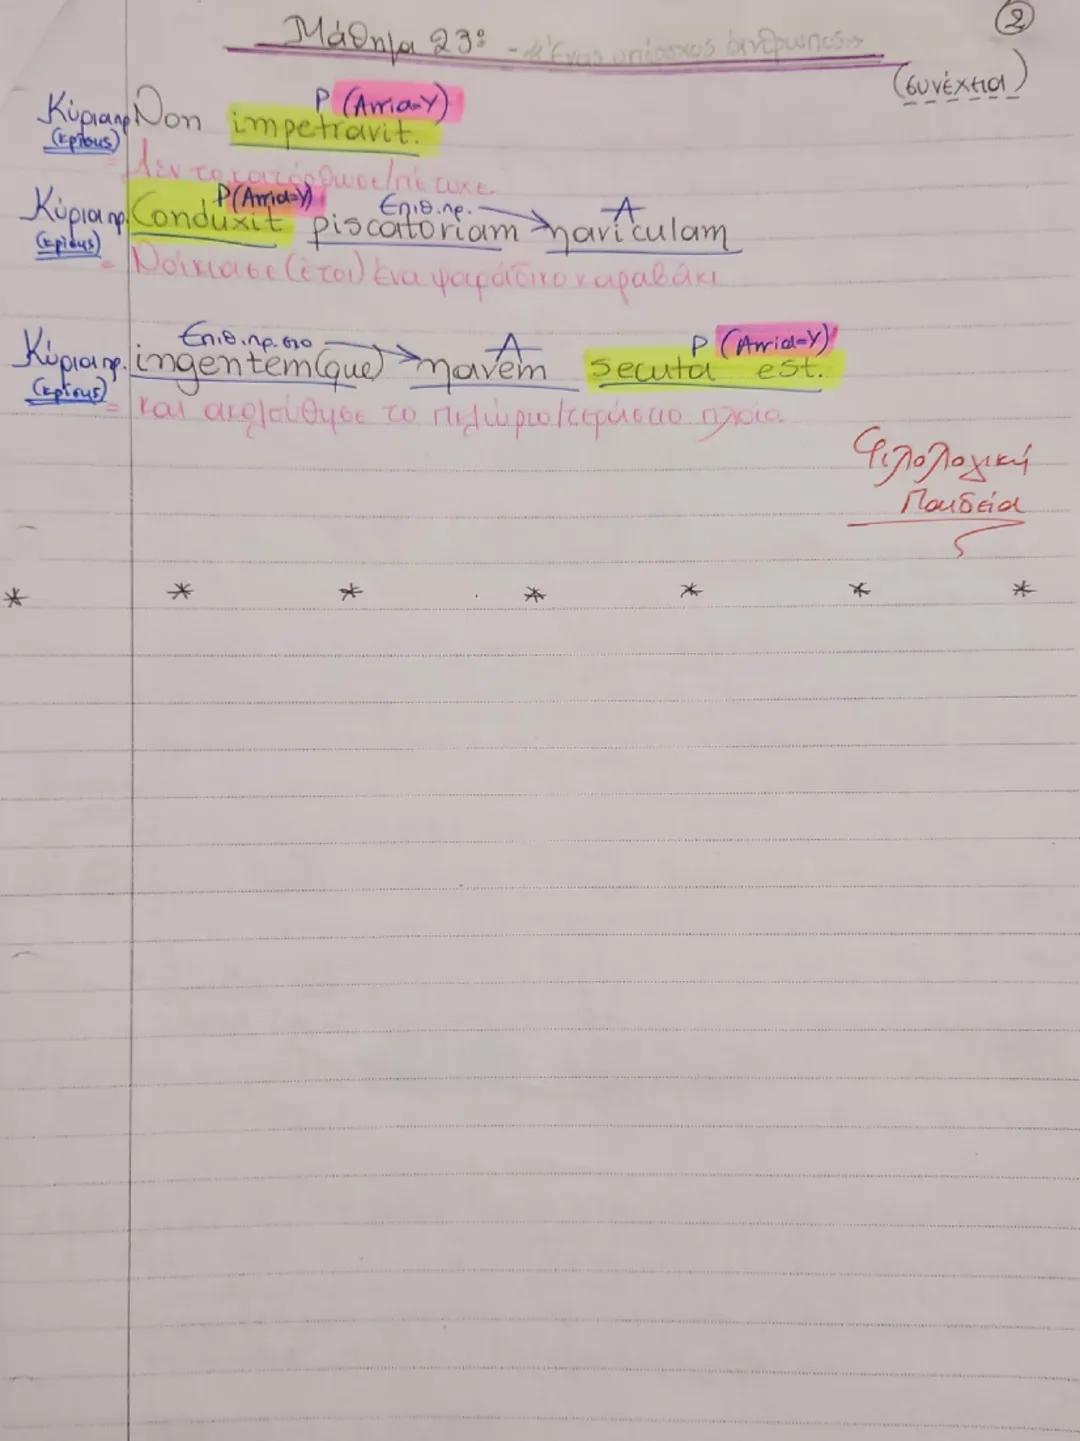 ②
Μάθημα 23º - «Ένας υπέροχος άνθρωπος»
(συνέχεια)
Ρ (Arria=Υ)
Κύρια πρ. Non impetravit.
(κρίσης)
= Δεν το κατόρθωσε/πέτυχε.
Ρ(Arria=Υ) Επιθ.πρ. Α
Κύρια πρ. Conduxit piscatoriam naviculam
(κρίσης)
= Νοίκιασε (έτσι) ένα ψαράδικο καραβάκι
Επιθ.πρ. στο Α Ρ (Arria=Υ)
Κύρια πρ. ingentem(que) navem secuta est.
(κρίσης)
= και ακολούθησε το πελώριο/τεράστιο πλοίο.
Φιλολογική
Παιδεία
* * * * * * *